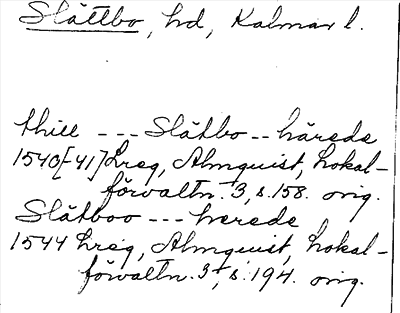 Slättbo, hd, Kalmar l.
thill --- Slätbo -- härede
1540[-41] Lreg, Almquist, Lokal-
förvaltn. 3, s. 158. orig.
Slätboo --- herede
1544 Lreg, Almquist, Lokal-
förvaltn. 3, s. 194. orig.